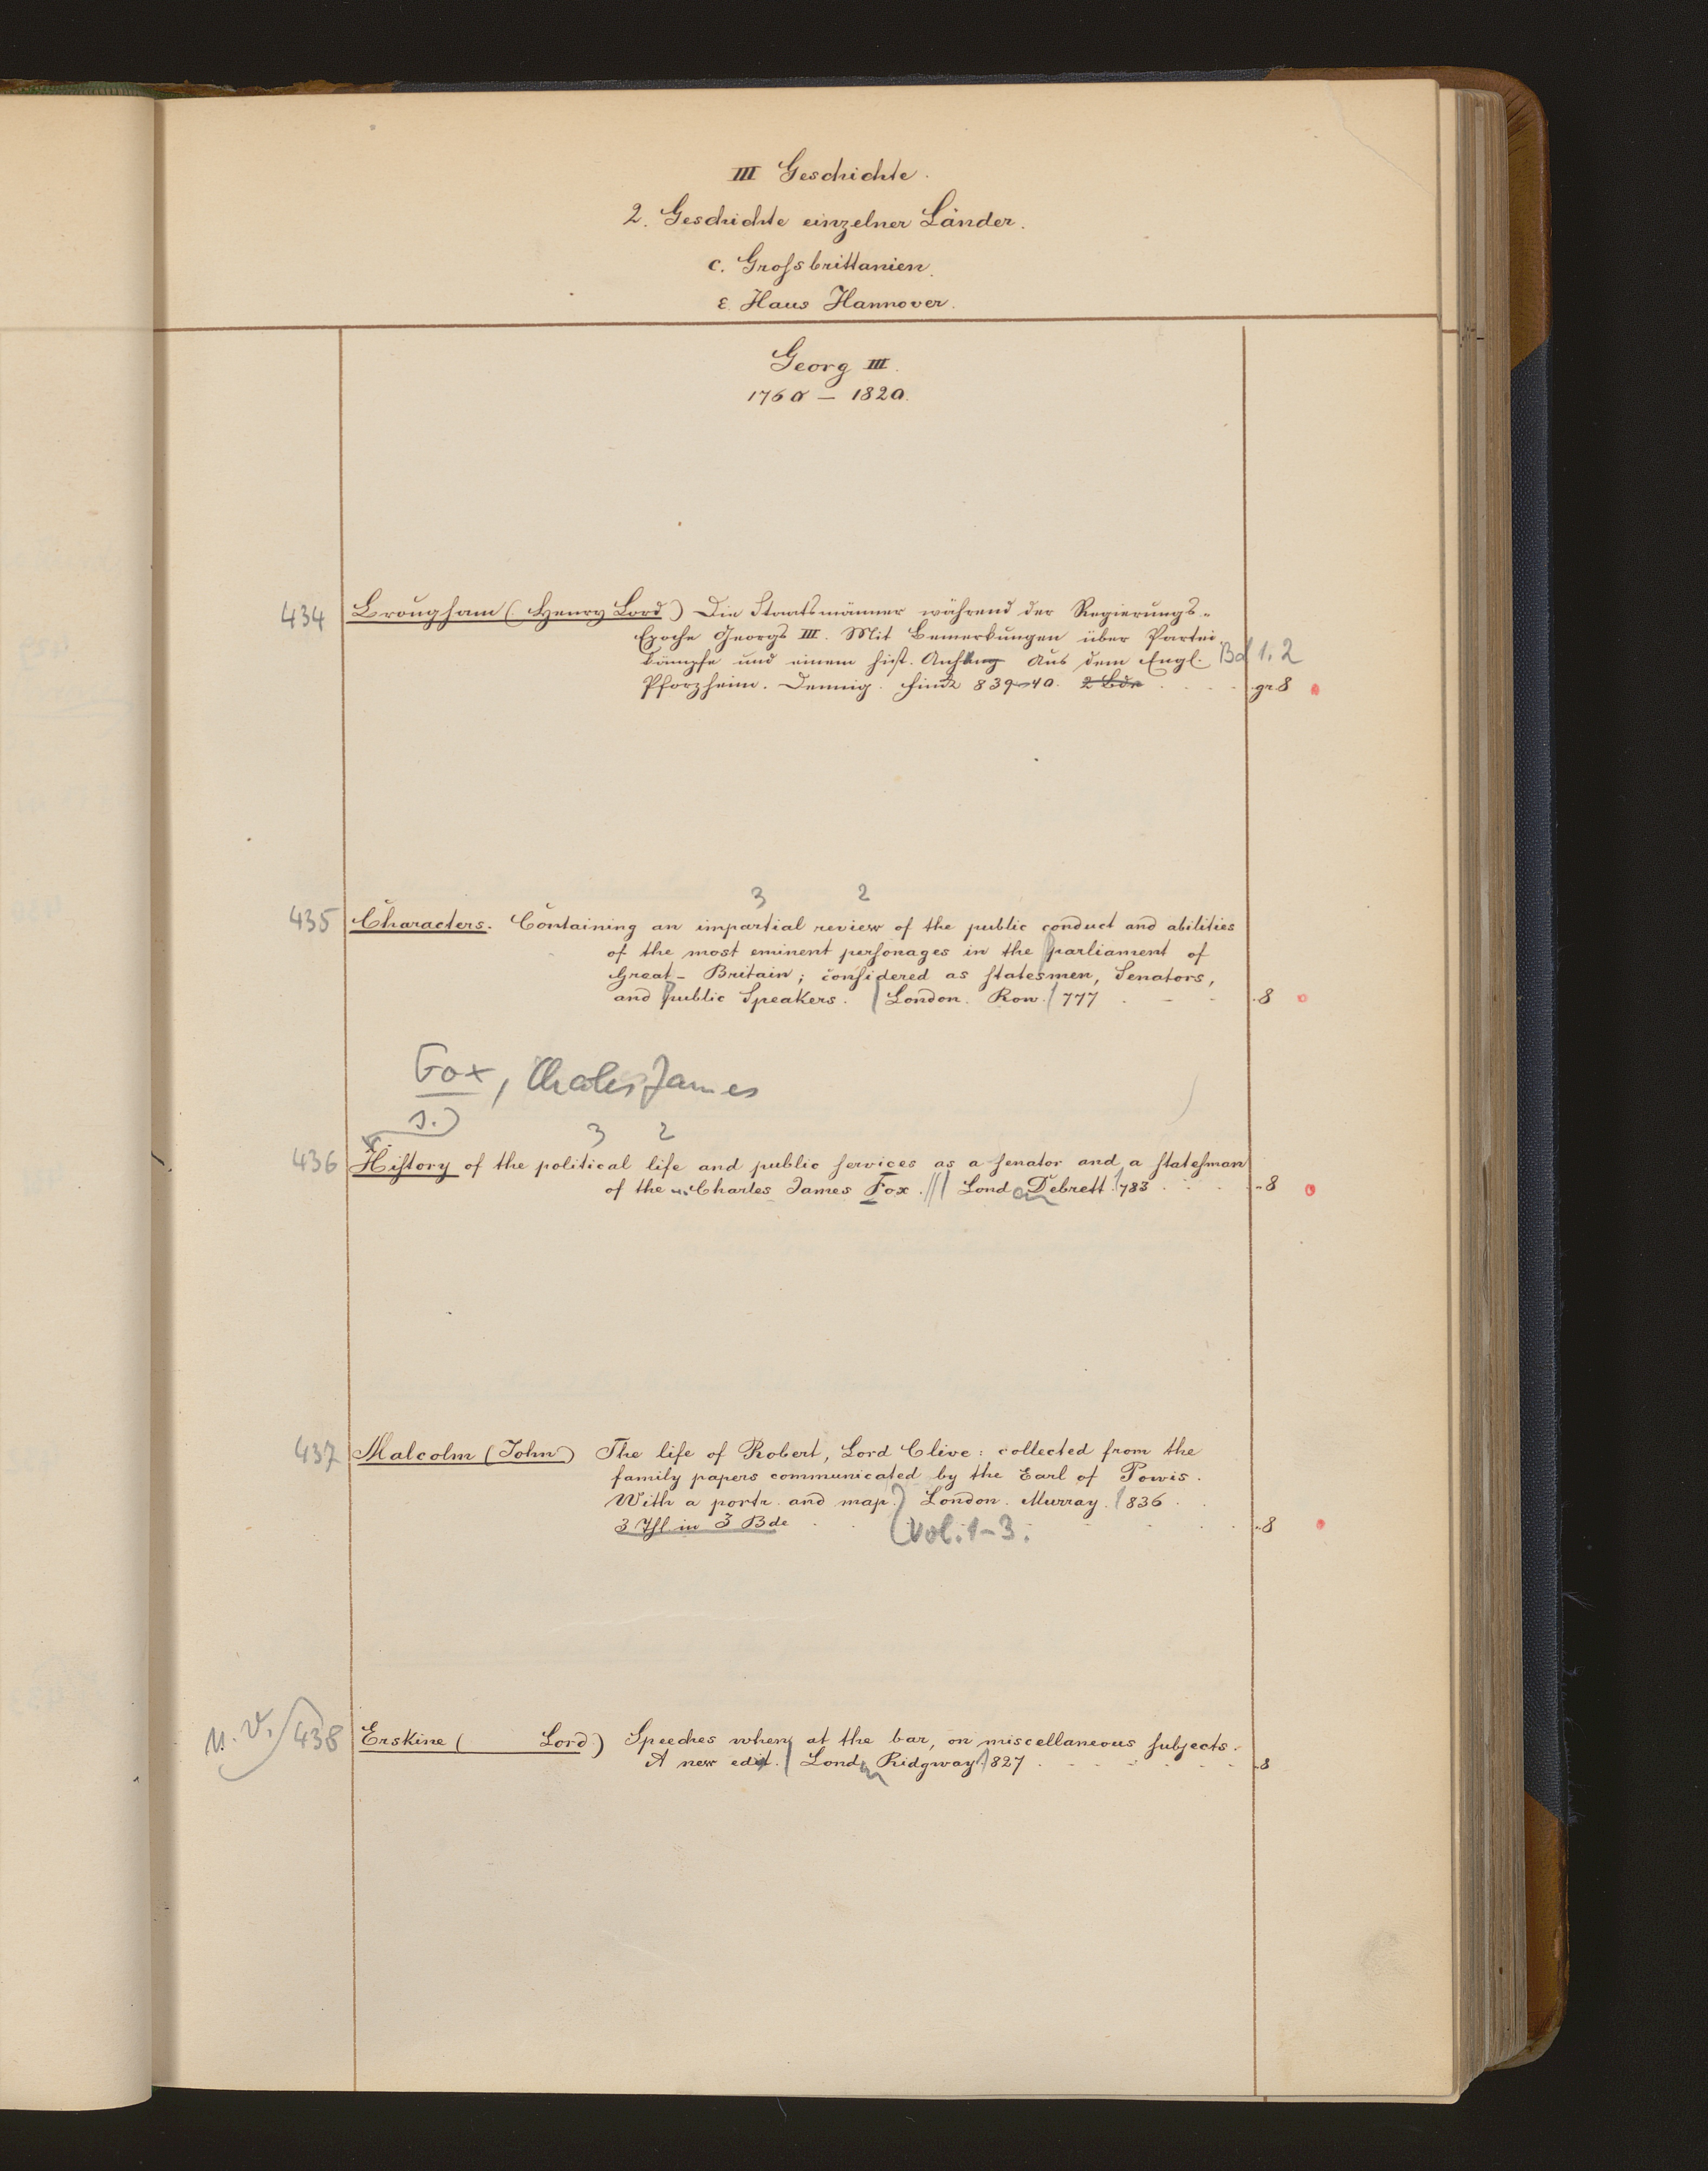 III Geschichte.
2. Geschichte einzelner Länder.
c. Grossbrittanien.
ε. Haus Hannover.
Georg III.
1760 — 1820.
434 Brougham (Henry Lord) Die Staatsmänner während der Regierungs-
Epoche Georgs III. Mit Bemerkungen über Partei
kämpfe und einem hist. Anhang Aus dem Engl. Bd 1. 2
Pforzheim. Dennig. Finck 839-40. 2 Bde gr. 8
3 2
435 Characters. Containing an impartial review of the public conduct and abilities
of the most eminent personages in the parliament of
Great-Britain; considered as statesmen, Senators,
and public Speakers. London. Row. 777 8
Fox, Charles James
s.
3 2
436 History of the political life and public services as a senator and a statesman
of the Charles James Fox. London Debrett 783 8
437 Malcolm (John) The life of Robert, Lord Clive: collected from the
family papers communicated by the Earl of Powis.
With a portr. and map. London. Murray. 836
3 Thl. in 3 Bde Vol. 1-3. 8
438 Erskine ( Lord) Speeches when at the bar, on miscellaneous subjects.
A new edit. London Ridgway 827 8